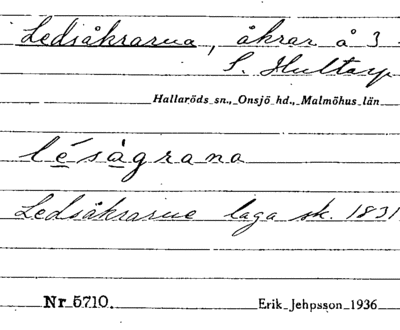 Ledsåkrarna, åkrar å 3
S. Hultarp
Hallaröds sn., Onsjö hd., Malmöhus län
lésàgrana
Ledsåkrarne laga sk. 1831
Nr 5710.
Erik Jehpsson 1936